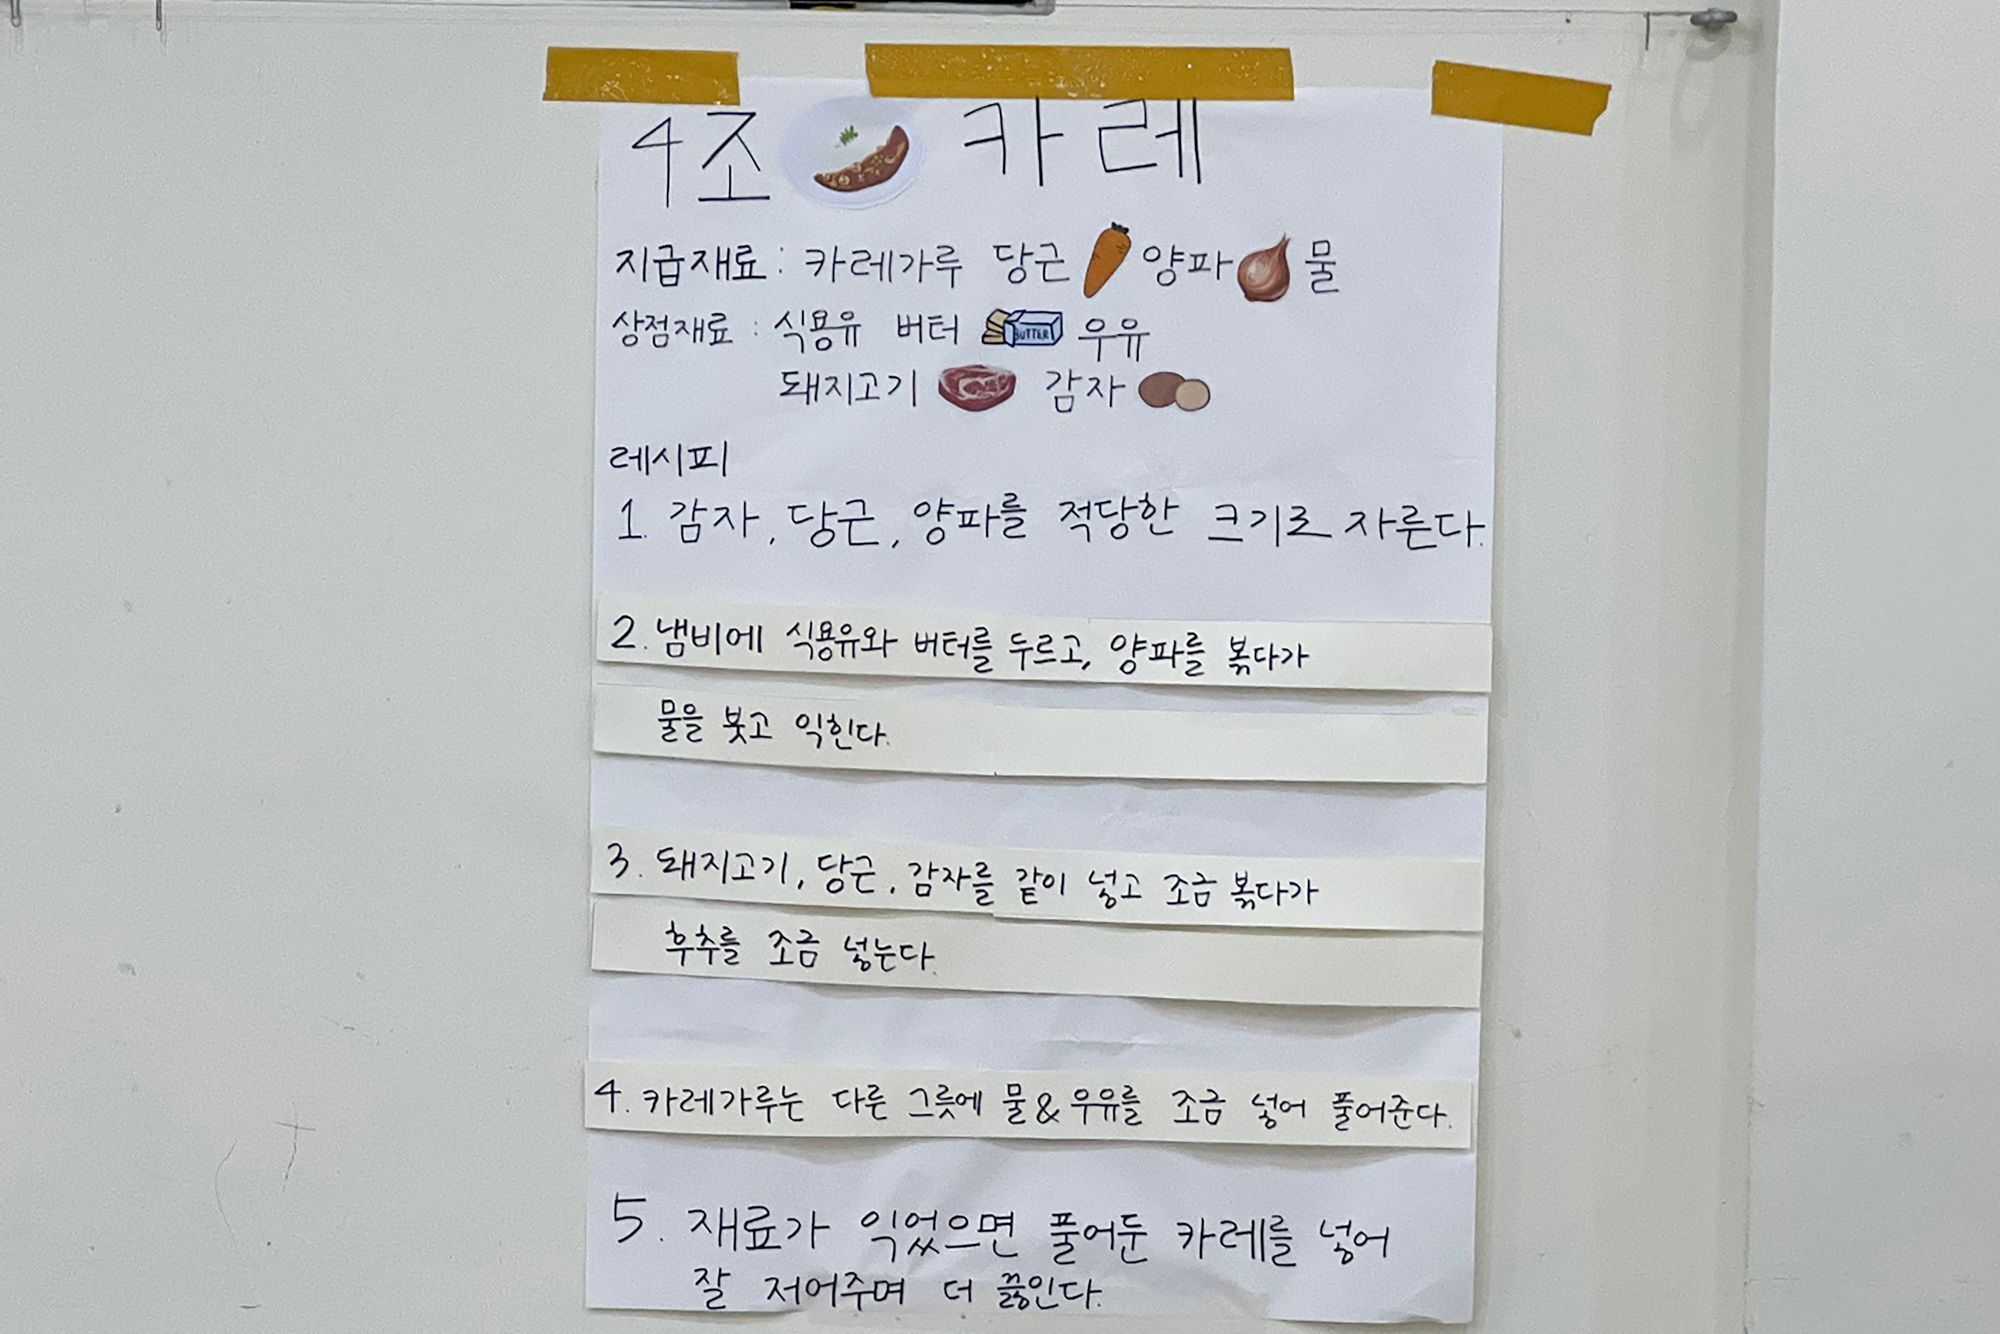 4조 카레
지급재료 : 카레가루 당근 양파 물
상점재료 : 식용유 버터 BUTTER 우유
돼지고기 감자
레시피
1. 감자, 당근, 양파를 적당한 크기로 자른다.
2. 냄비에 식용유와 버터를 두르고, 양파를 볶다가
물을 붓고 익힌다.
3. 돼지고기, 당근, 감자를 같이 넣고 조금 볶다가
후추를 조금 넣는다.
4. 카레가루는 다른 그릇에 물&우유를 조금 넣어 풀어준다.
5. 재료가 익었으면 풀어둔 카레를 넣어
잘 저어주며 더 끓인다.